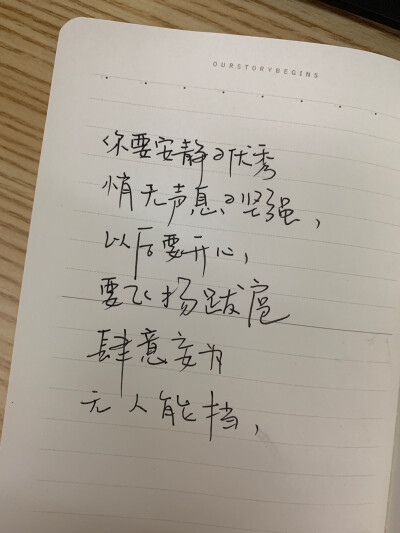 OURSTORYBEGINS
你要安静的优秀
悄无声息的坚强，
以后要开心，
要飞扬跋扈
肆意妄为
无人能挡，